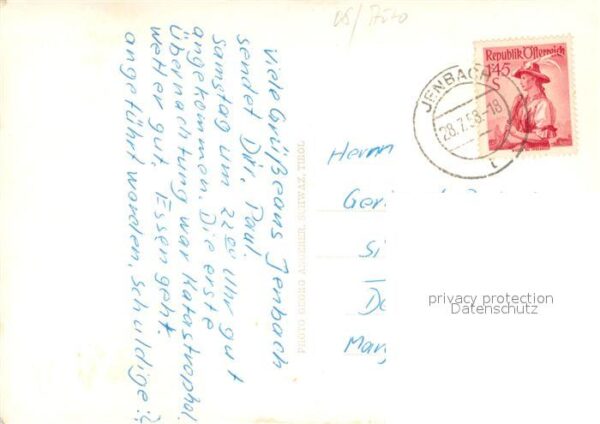 Viele Grüße aus Jenbach
sendet Dir Paul.
Samstag um 22 00 Uhr gut
angekommen. Die erste
Übernachtung war Katastrophal.
Wetter gut. Essen geht.
angeführt worden. Schuldige:?
PHOTO GEORG ANGERER, SCHWAZ, TIROL
Republik Österreich
1'45
S
JENBACH
28.7.58-18
Herrn
Ger
Si
Mar
privacy protection
Datenschutz